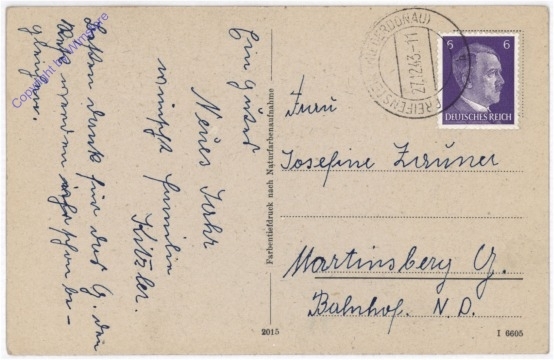 Ein gutes
Neues Jahr
wünscht Familie
Kitzler.
Besten Dank für das G. die
werden schon be-
Copyright by Wimstore
Farbentiefdruck nach Naturfarbenaufnahme
2015
(NIEDERDONAU)
27.12.43-11
6 6
DEUTSCHES REICH
Frau
Josefine Zauner
Martinsberg G.
Bahnhof. N. D.
I 6605